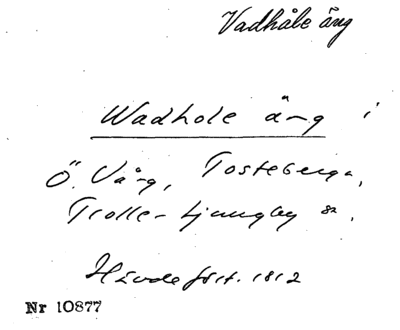 Vadhåle äng
Wadhole äng i
Ö. Vång, Tosteberga,
Trolle-Ljungby sn.
Hävdefört. 1812
Nr 10877